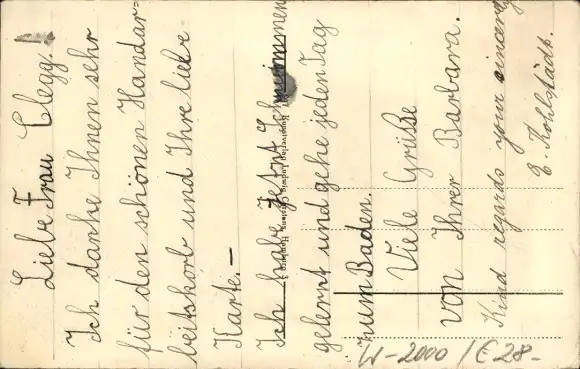 Liebe Frau Clegg.
Ich danke Ihnen sehr
für den schönen Handar-
beitskorb und Ihre liebe
Karte.—
Ich habe jetzt Schwimmen
gelernt und gehe jeden Tag
zum Baden.
Viele Grüße
von Ihrer Barbara.
Kind regards your sincerely
E. Kohlstädt.
W-2000 / € 28-